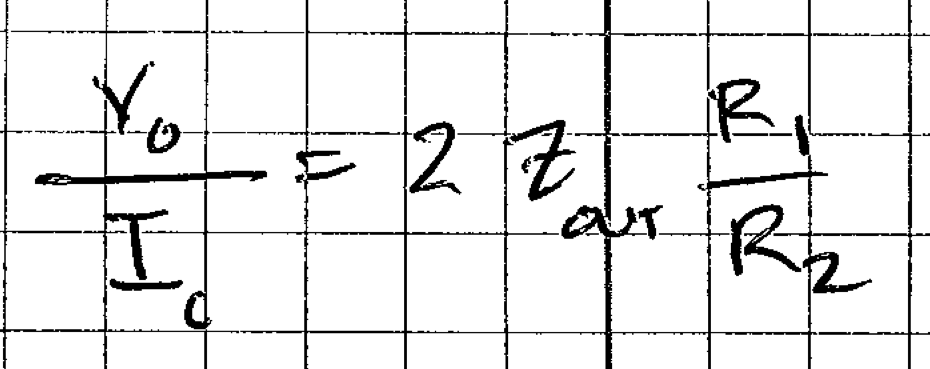 V₀/I₀ = 2 Z_out R₁/R₂